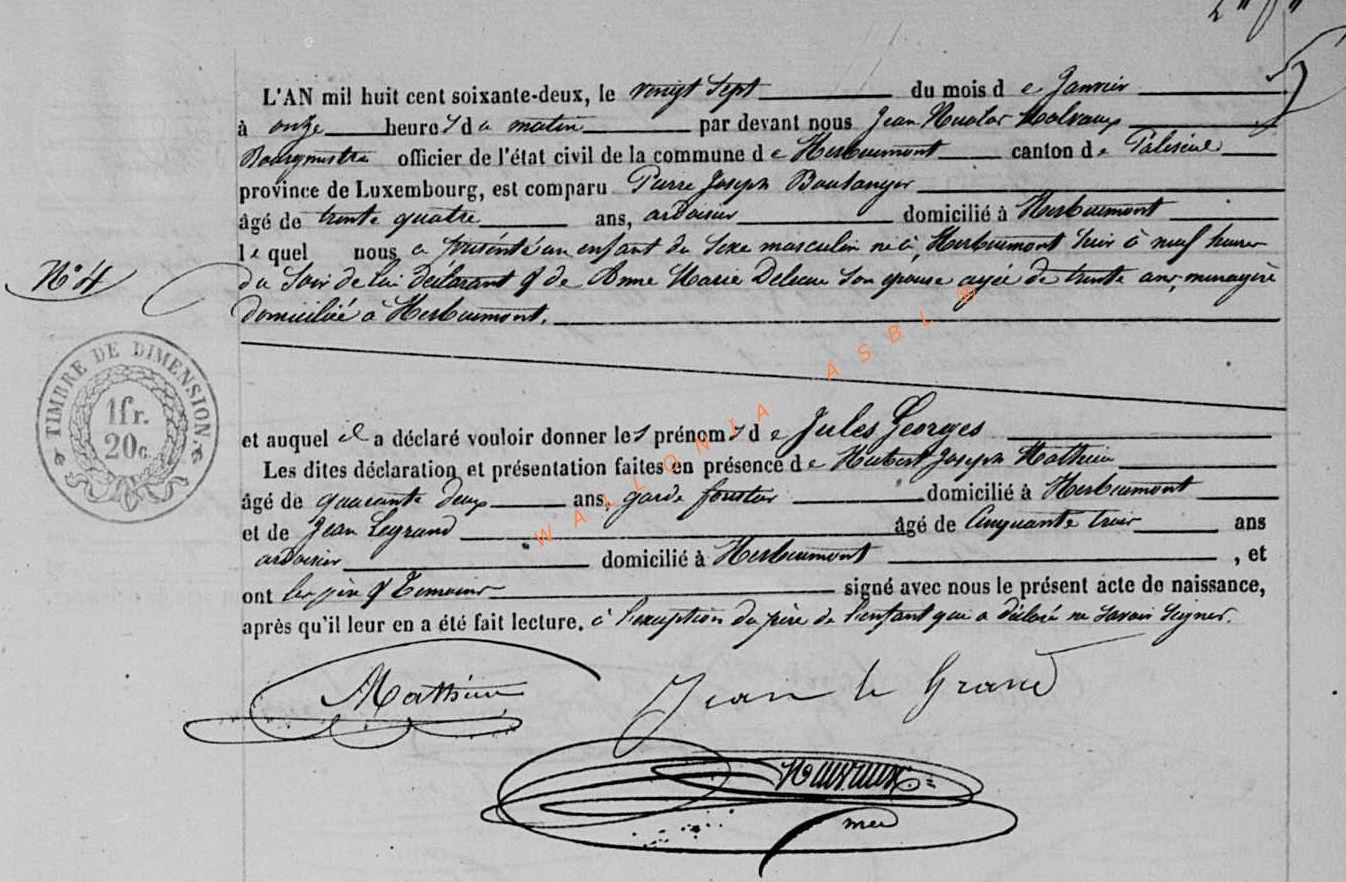 L'AN mil huit cent soixante-deux, le vingt sept du mois de Janvier
à onze heures du matin par devant nous Jean Nicolas Malvaux
Bourgmestre officier de l'état civil de la commune de Herbeumont canton de Paliseul
province de Luxembourg, est comparu Pierre Joseph Boulanger
âgé de trente quatre ans, ardoisier domicilié à Herbeumont
le quel nous a présenté un enfant du sexe masculin né à Herbeumont hier à neuf heures
N° 4
du soir de lui déclarant & de Anne Marie son épouse agée de trente ans, menagère
domiciliée à Herbeumont.
TIMBRE DE DIMENSION.
1 fr.
20 c.
et auquel il a déclaré vouloir donner les prénoms de Jules Georges
Les dites déclaration et présentation faites en présence de Hubert Joseph Mathieu
âgé de quarante deux ans, garde forestier domicilié à Herbeumont
et de Jean Legrand âgé de Cinquante trois ans
ardoisier domicilié à Herbeumont, et
ont les père & Temoins signé avec nous le présent acte de naissance,
après qu'il leur en a été fait lecture. à l'exception du père de l'enfant qui a déclaré ne savoir signer.
Mathieu Jean le Grand
WALLONIA ASBL ®